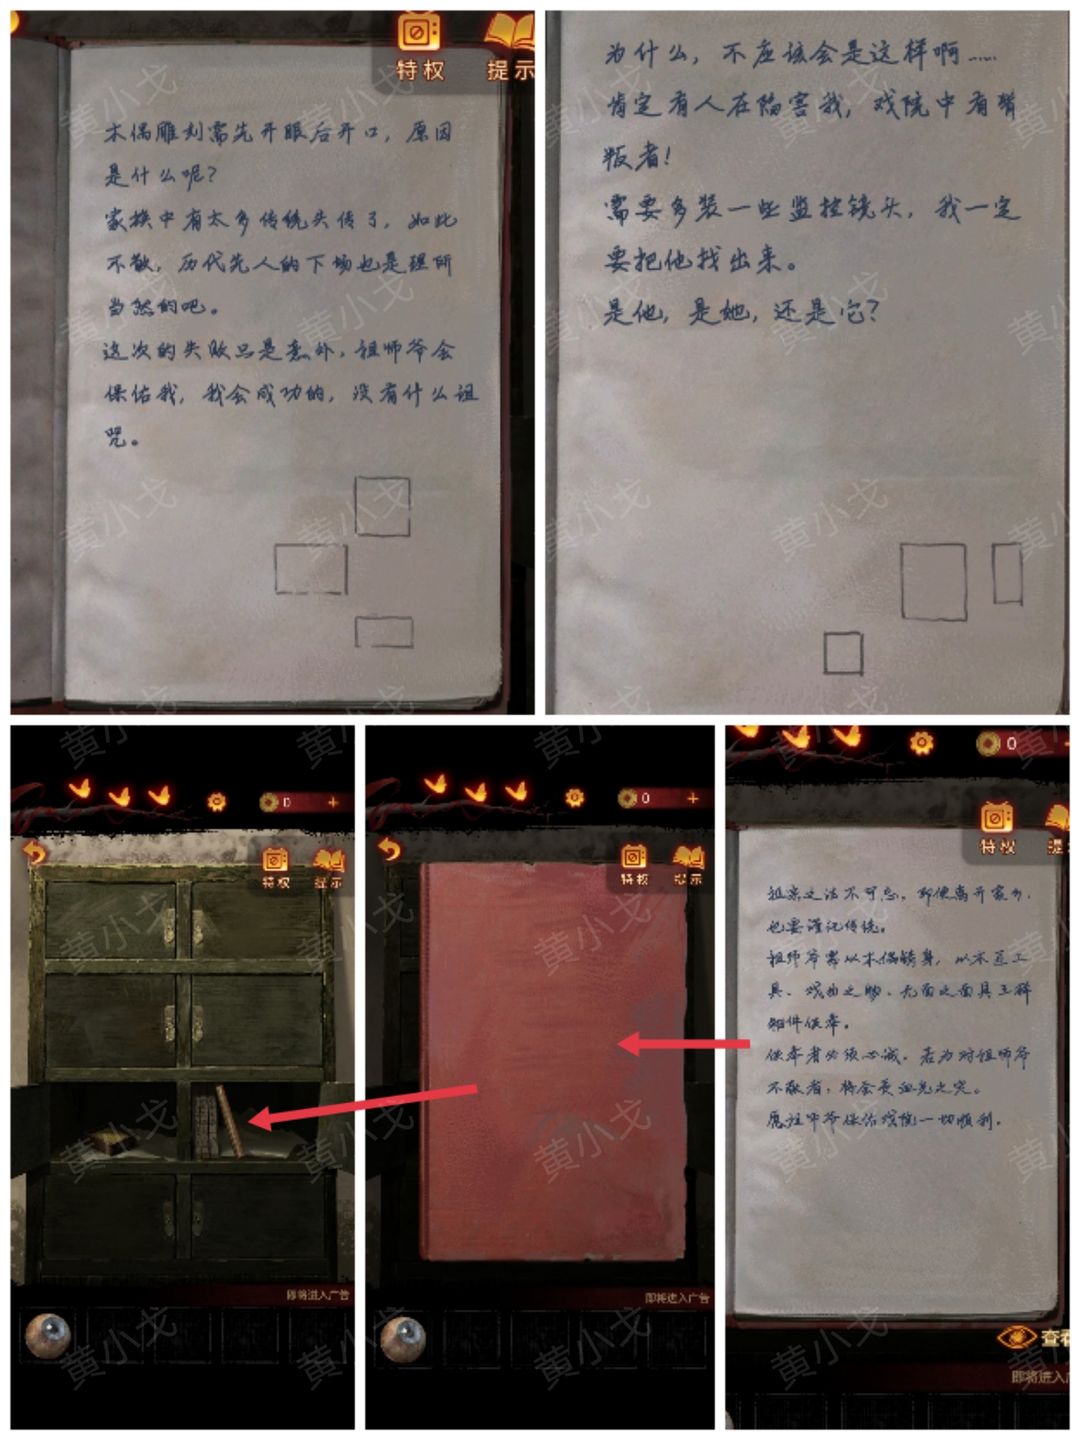 特权
提示
木偶雕刻需先开眼后开口，原因
是什么呢？
家族中有太多传统失传了，如此
不敬，历代先人的下场也是理所
当然的吧。
这次的失败只是意外，祖师爷会
保佑我，我会成功的，没有什么诅
咒。
为什么，不应该会是这样啊……
肯定有人在陷害我，戏院中有背
叛者！
需要多装一些监控镜头，我一定
要把他找出来。
是他，是她，还是它？
0
特权
提示
即将进入广告
0
特权
提示
即将进入广告
0
特权
提
祖宗之法不可忘，即便离开家乡，
也要谨记传统。
祖师爷需以木偶铸身，以木匠工
具、戏曲之物、无面之面具三样
物件供奉。
供奉者必须心诚，若为对祖师爷
不敬者，将会受血光之灾。
愿祖师爷保佑戏院一切顺利。
查看
即将进入广
黄小戈